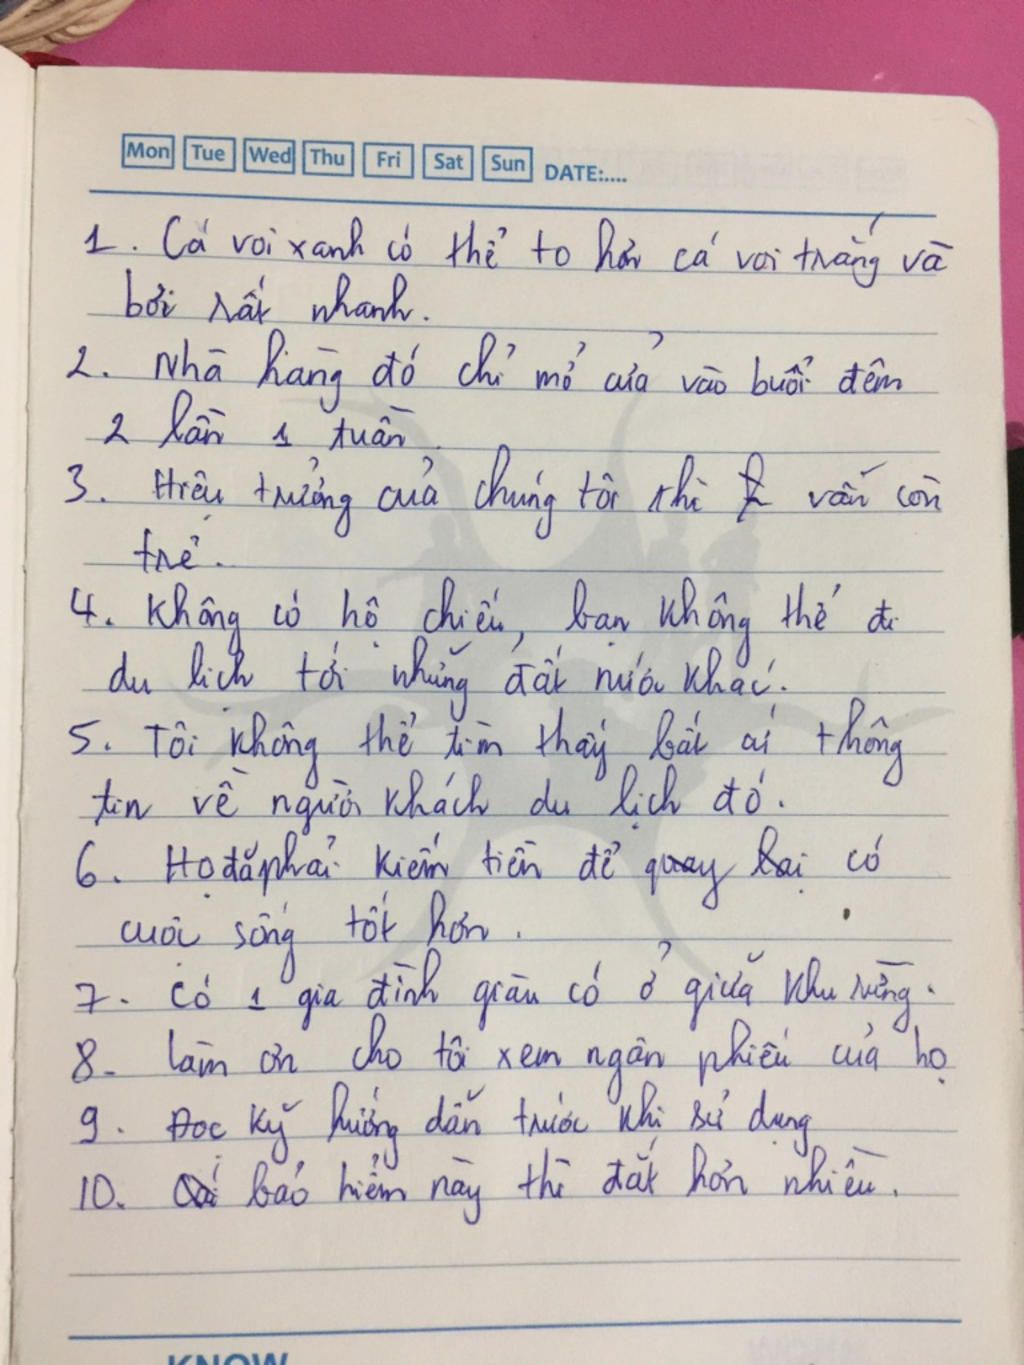 Mon Tue Wed Thu Fri Sat Sun DATE:....
1. Cá voi xanh có thể to hơn cá voi trắng và
bơi rất nhanh.
2. Nhà hàng đó chỉ mở cửa vào buổi đêm
2 lần 1 tuần.
3. Hiệu trưởng của chúng tôi thì vẫn còn
trẻ.
4. Không có hộ chiếu, bạn không thể đi
du lịch tới những đất nước khác.
5. Tôi không thể tìm thấy bất cứ thông
tin về người khách du lịch đó.
6. Họ đã phải kiếm tiền để quay lại có
cuộc sống tốt hơn.
7. Có 1 gia đình giàu có ở giữa khu rừng.
8. Làm ơn cho tôi xem ngân phiếu của họ
9. Đọc kỹ hướng dẫn trước khi sử dụng
10. bảo hiểm này thì đắt hơn nhiều.
KNOW